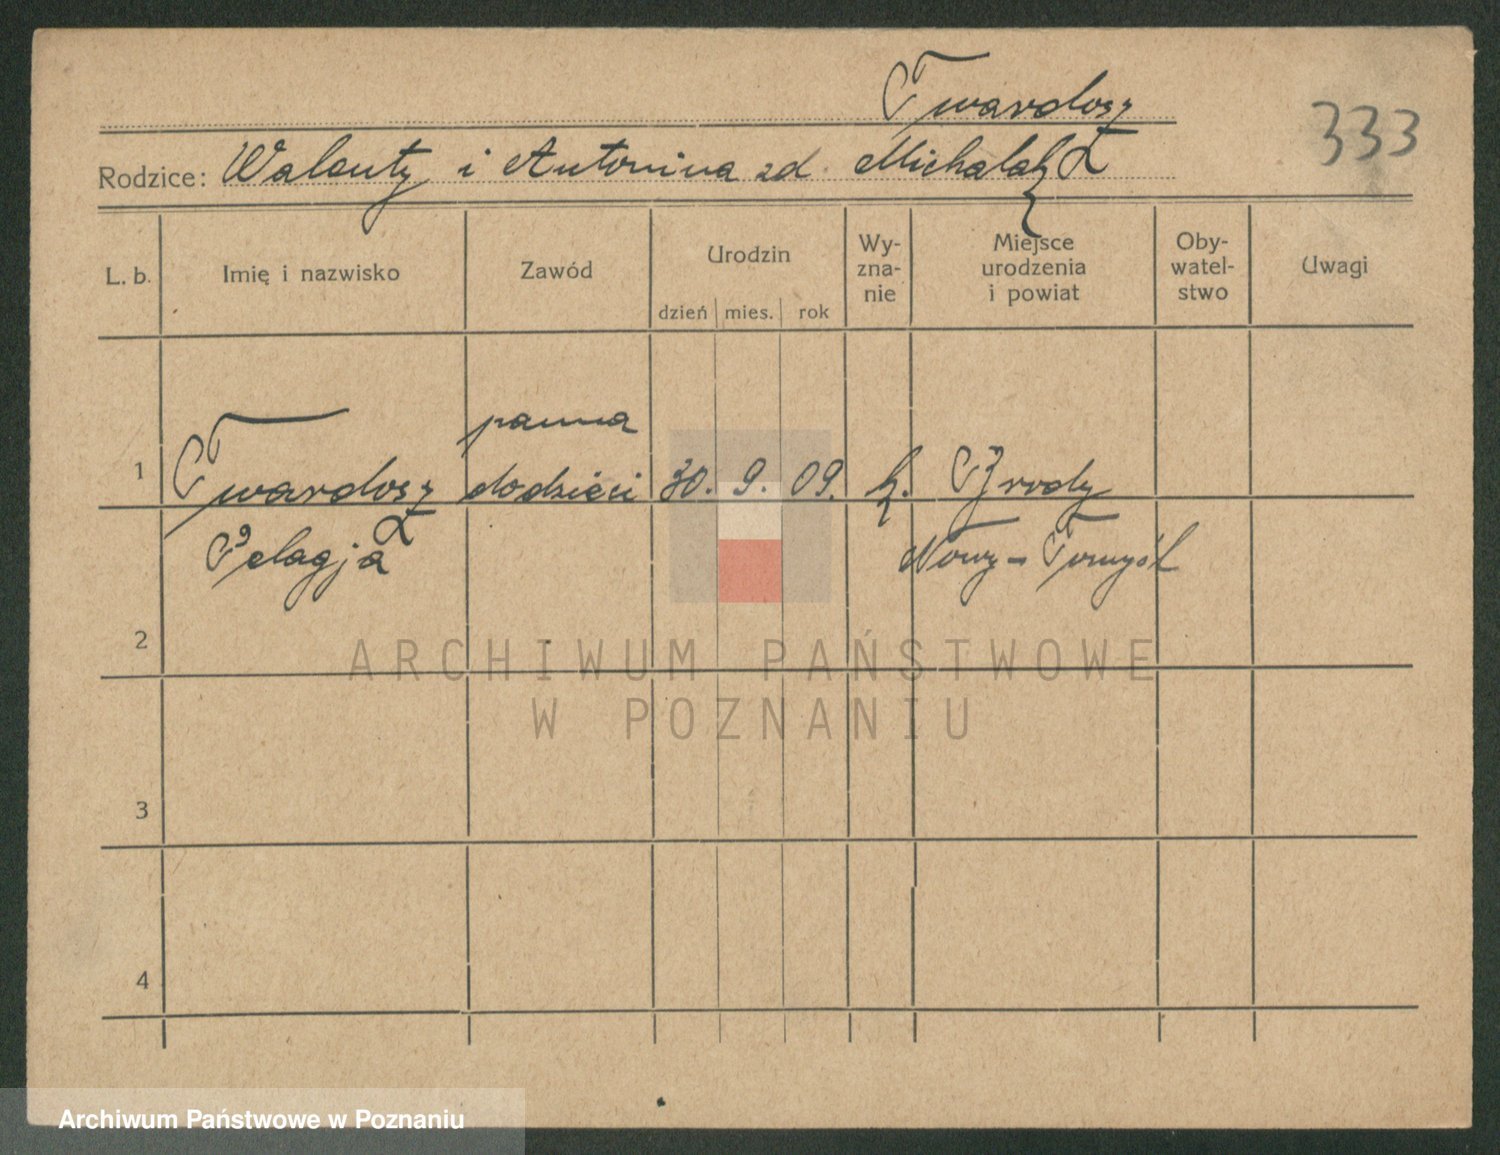 Twardosz
333
Rodzice: Walenty i Antonina zd. Michalak
L. b. Imię i nazwisko Zawód Urodzin Wy-zna-nie Miejsce urodzenia i powiat Oby-watel-stwo Uwagi
dzień mies. rok
panna
1 Twardosz do dzieci 30. 9. 09. k. Brody
Pelagja Nowy-Tomyśl
2
ARCHIWUM PAŃSTWOWE
W POZNANIU
3
4
Archiwum Państwowe w Poznaniu